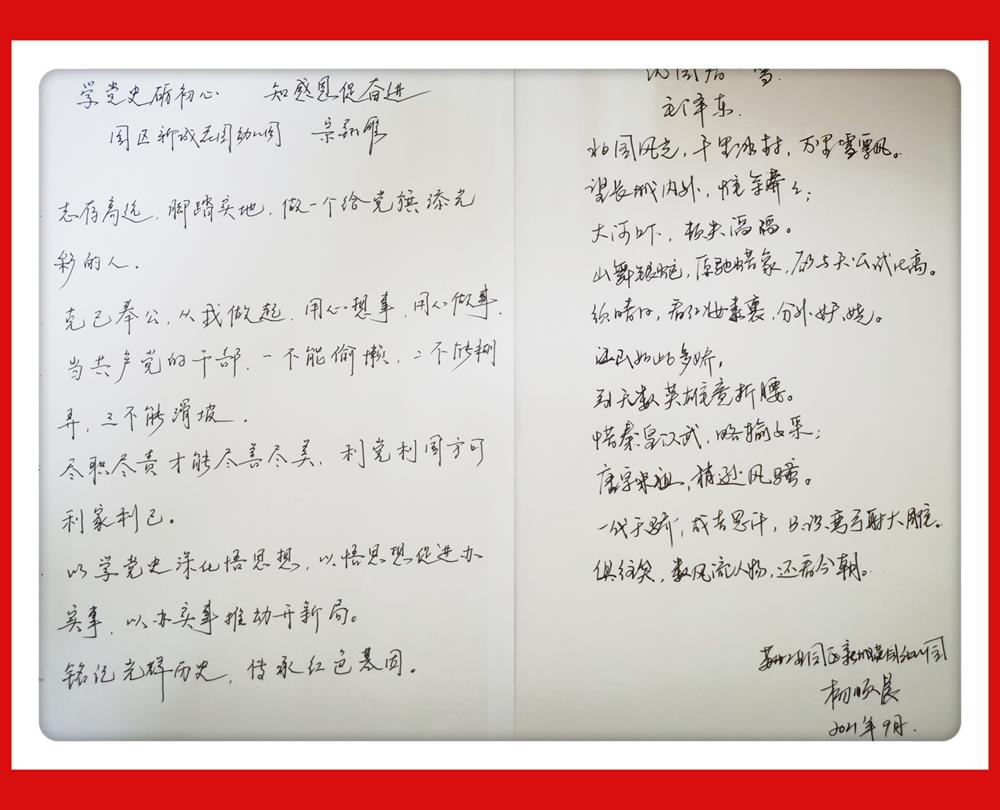 学党史砺初心 知感恩促奋进
园区新城花园幼儿园
志存高远，脚踏实地，做一个给党旗添光
彩的人.
克己奉公，从我做起，用心想事，用心做事.
当共产党的干部，一不能偷懒，二不能糊
弄，三不能滑坡.
尽职尽责才能尽善尽美，利党利国方可
利家利己。
以学党史深化悟思想，以悟思想促进办
实事，以办实事推动开新局。
铭记光辉历史，传承红色基因。
沁园春 雪.
毛泽东.
北国风光，千里冰封，万里雪飘。
望长城内外，惟余莽莽；
大河上下，顿失滔滔。
山舞银蛇，原驰蜡象，欲与天公试比高。
须晴日，看红妆素裹，分外妖娆。
江山如此多娇，
引无数英雄竞折腰。
惜秦皇汉武，略输文采；
唐宗宋祖，稍逊风骚。
一代天骄，成吉思汗，只识弯弓射大雕。
俱往矣，数风流人物，还看今朝。
苏州工业园区新城花园幼儿园
2021年9月.